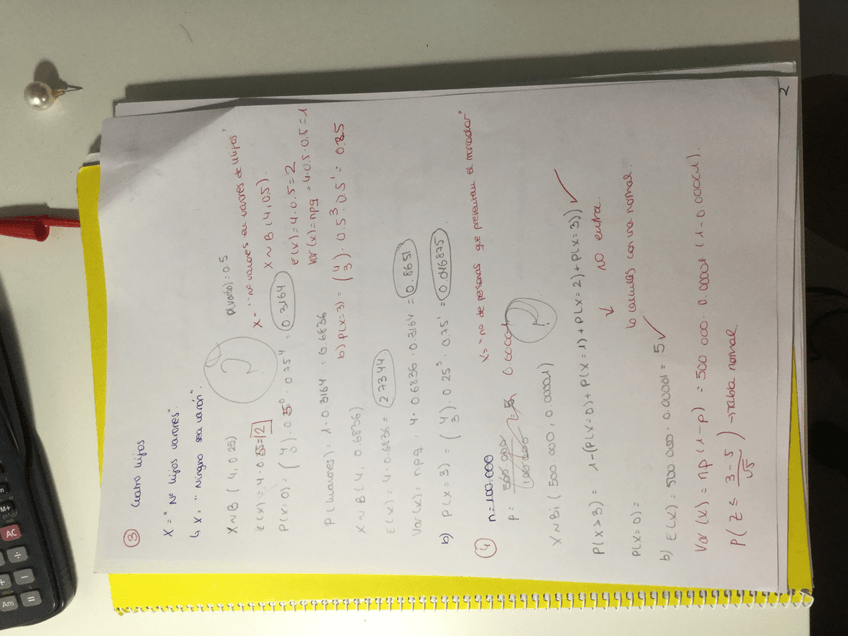 ③ Cuatro hijos
X = "Nº hijos varones"
↳ X, "Ninguno sea varón"
X ~ B ( 4, 0.25)
p(varón) = 0.5
E(x) = 4 · 0.5 = 2
X = "nº varones en varones de 4 hijos"
X ~ B (4, 0.5)
P(X=0) = (4 0) · 0.5⁰ · 0.75⁴ = 0.3164
E(x) = 4 · 0.5 = 2
Var(x) = npq = 4 · 0.5 · 0.5 = 1
P (varones) = 1 - 0.3164 = 0.6836
b) P(X=3) = (4 3) · 0.5³ · 0.5¹ = 0.25
X ~ B (4, 0.6836)
E(x) = 4 · 0.6836 = 2.7344
Var (x) = npq = 4 · 0.6836 · 0.3164 = 0.8651
b) P(X=3) = (4 3) · 0.25³ · 0.75¹ = 0.046875
④ n = 100.000
X = "nº de personas que presentan el marcador"
p = 0.00001
X ~ Bi ( 500 000, 0.00001)
P(X>3) = 1 - (P(X=0) + P(X=1) + P(X=2) + P(X=3)) ✓
↓ no entra
P(X=0) =
lo calculas con una normal.
b) E(X) = 500 000 · 0.00001 = 5 ✓
Var (X) = np (1-p) = 500 000 · 0.00001 (1 - 0.00001).
P( Z ≤ (3-5)/√5 ) → tabla normal
2
M+
AC
Am